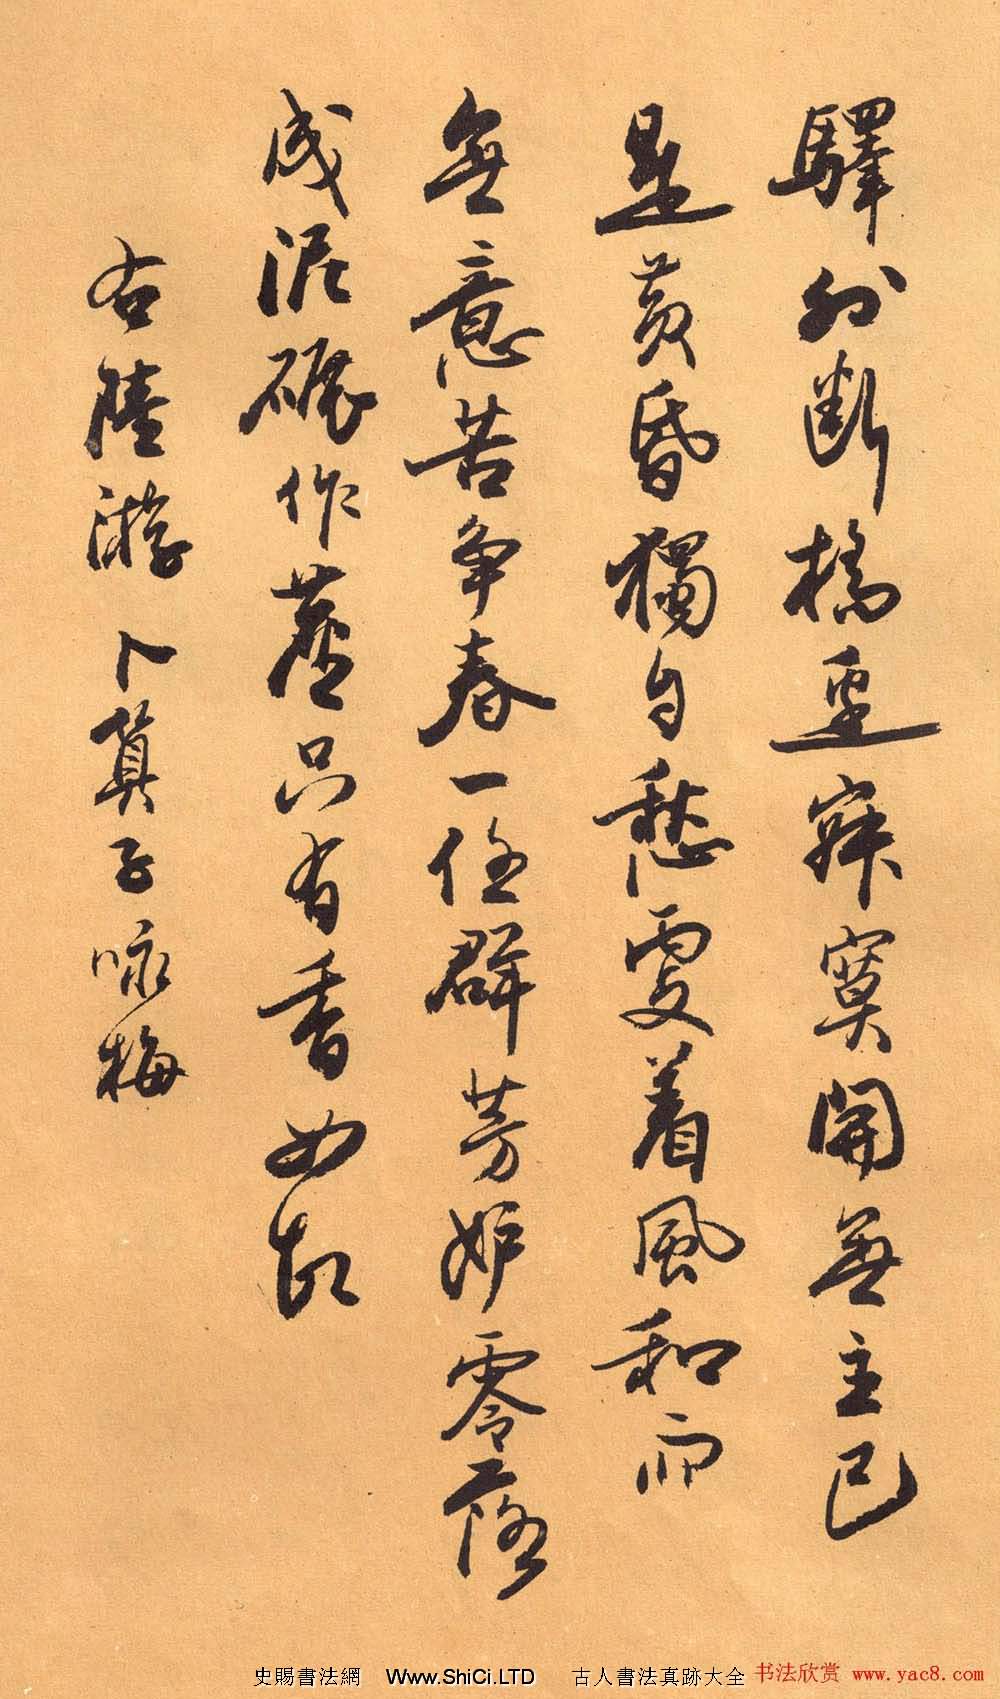 驛外斷橋邊寂寞開無主已
是黃昏獨自愁更着風和雨
無意苦爭春一任群芳妒零落
成泥碾作塵只有香如故
右陸游卜算子咏梅
史賜書法網 Www.ShiCi.LTD 古人書法真跡大全 书法欣赏 www.yac8.com